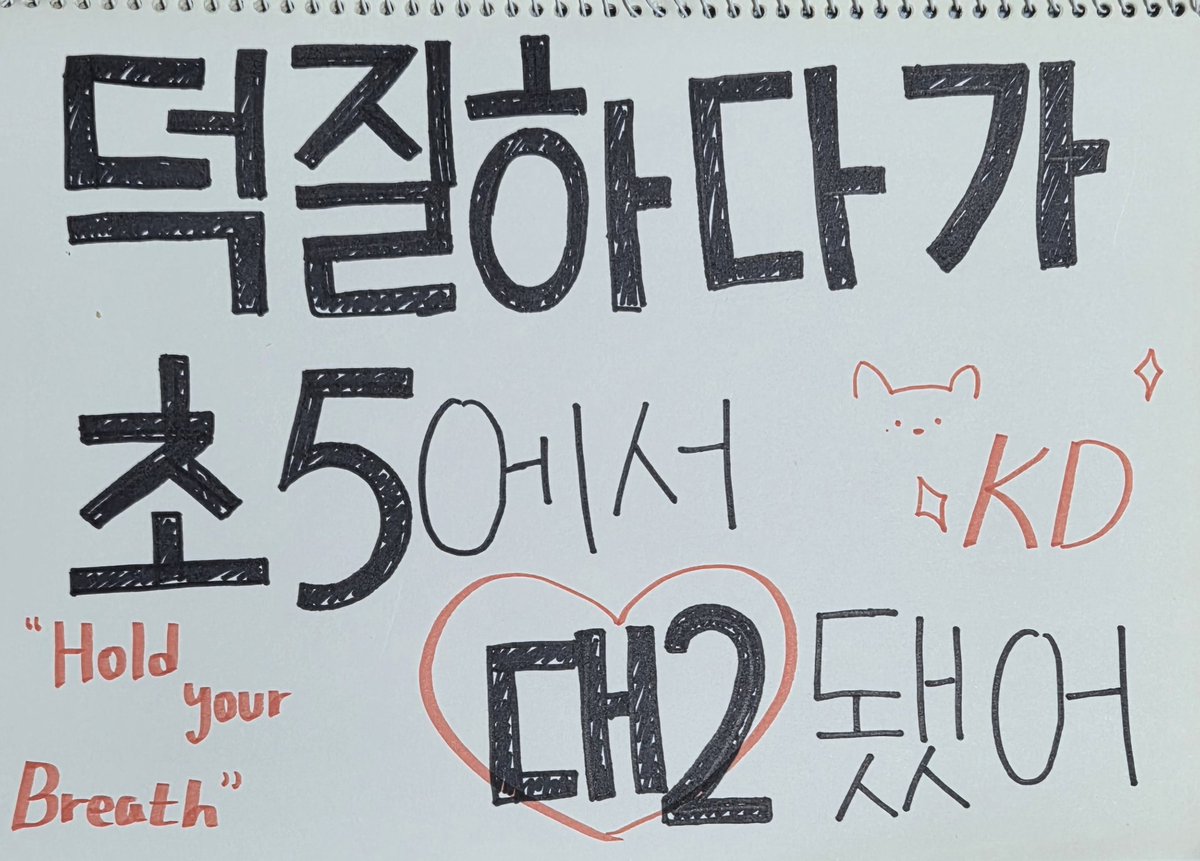 덕질하다가
초5에서
KD
대2 됐어
"Hold
your
Breath"